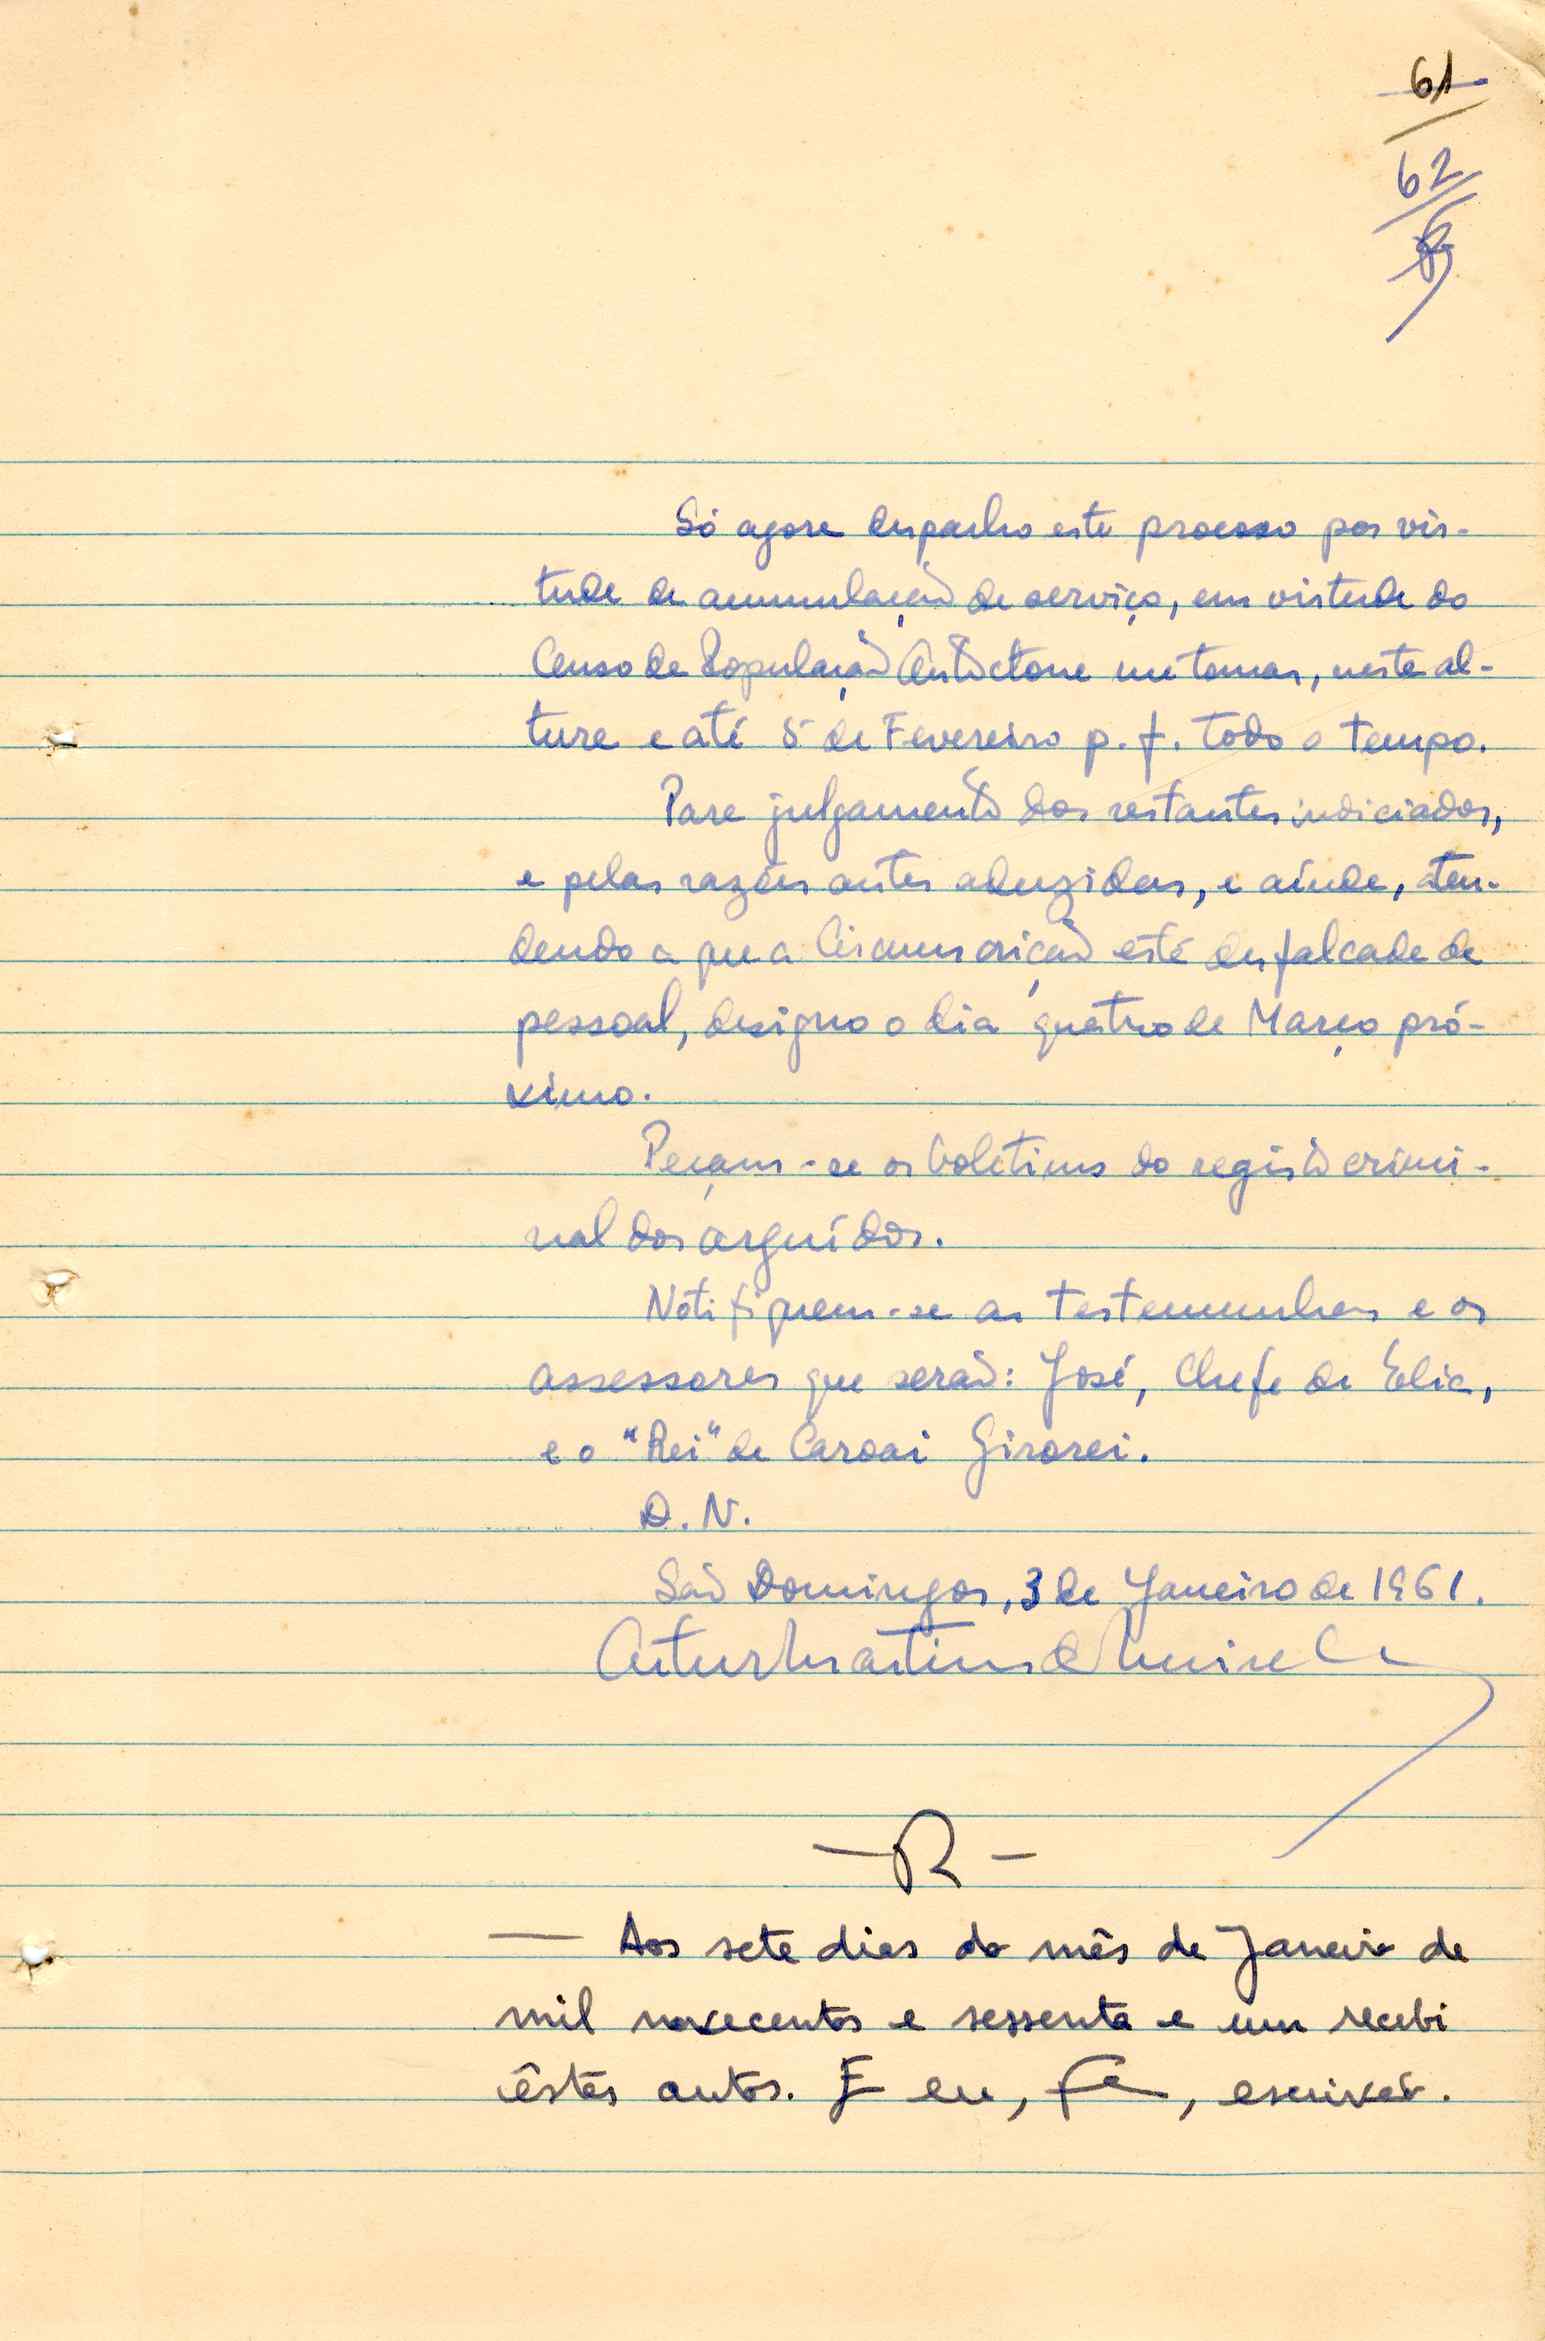 61
62
Só agora despacho este processo por vir-
tude de acumulação de serviço, em virtude do
Censo da População Autóctone me tomar, nesta al-
tura e até 5 de Fevereiro p. f. todo o tempo.
Para julgamento dos restantes indiciados,
e pelas razões antes aduzidas, e ainda, aten-
dendo a que a Circunscrição está desfalcada de
pessoal, designo o dia quatro de Março pró-
ximo.
Peçam-se os boletins do registo crimi-
nal dos arguídos.
Notifiquem-se as testemunhas e os
assessores que serão: José, Chefe de Elia,
e o "Rei" de Caroai Girorei.
D. N.
São Domingos, 3 de Janeiro de 1961.
Artur Martins de
- R -
— Aos sete dias do mês de Janeiro de
mil novecentos e sessenta e um recebi
êstes autos. E eu, , escrivão.